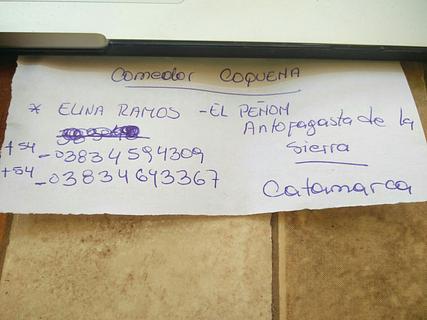 Comedor COQUENA
* ELINA RAMOS - EL PEÑOM
Antofagasta de la
Sierra
+54 -03834594309
+54 -03834643367
Catamarca